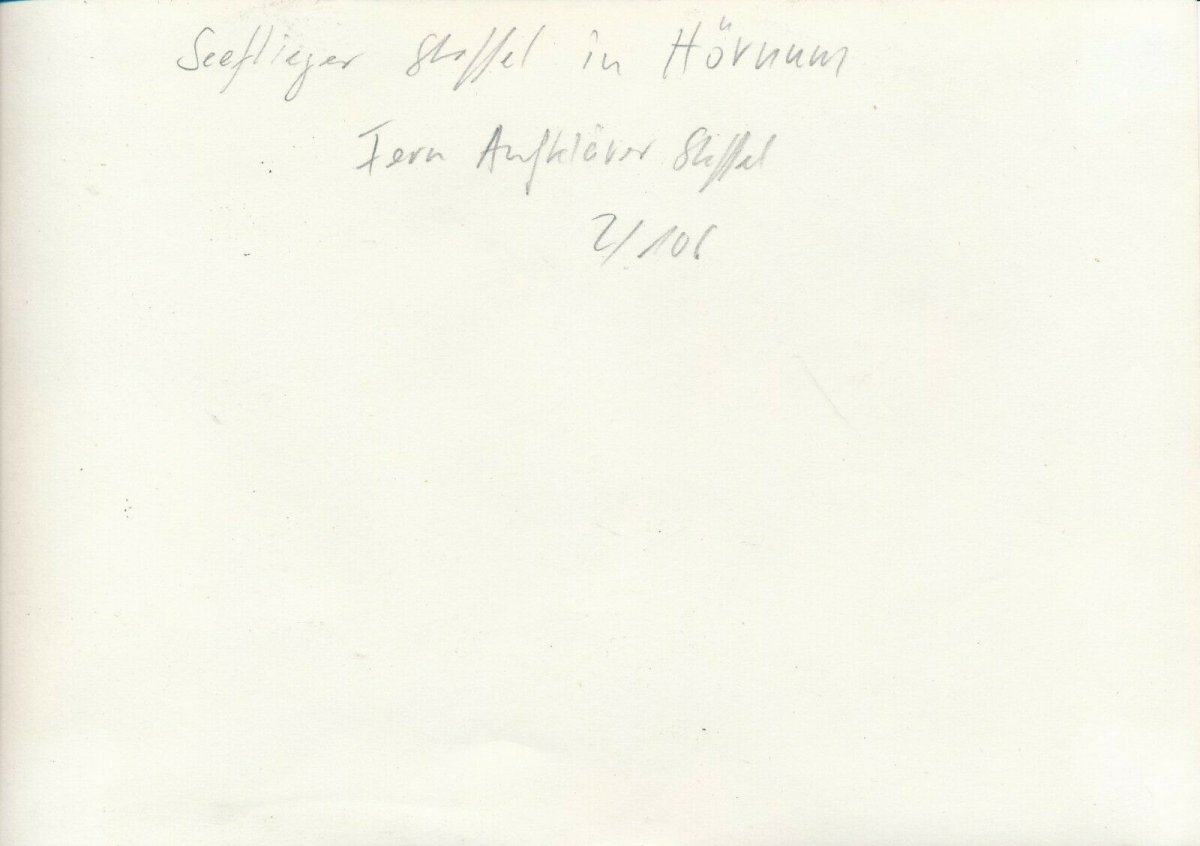 Seeflieger Staffel in Hörnum
Fern Aufklärer Staffel
2/106